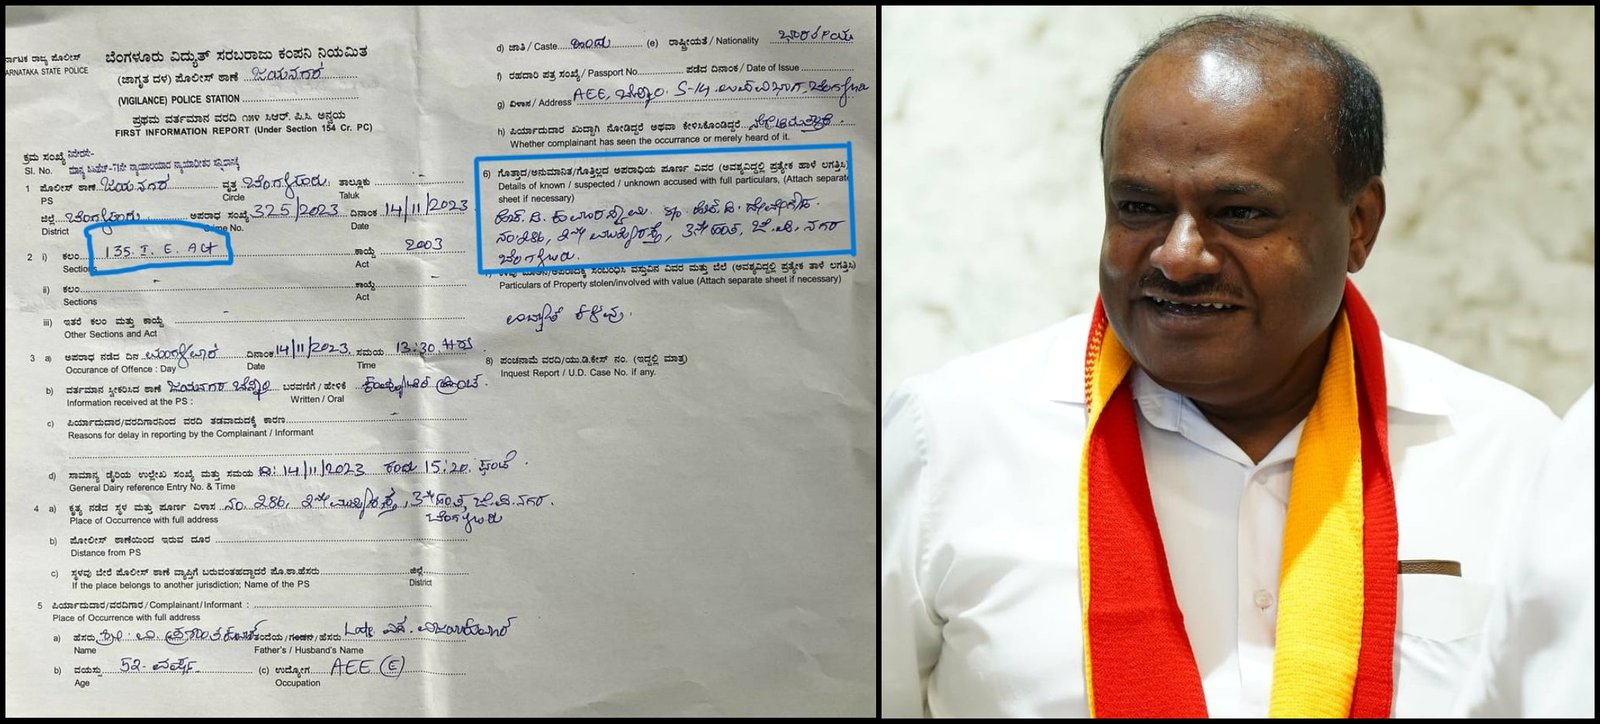 ರ್ನಾಟಕ ರಾಜ್ಯ ಪೊಲೀಸ್
ARNATAKA STATE POLICE
ಬೆಂಗಳೂರು ವಿದ್ಯುತ್ ಸರಬರಾಜು ಕಂಪನಿ ನಿಯಮಿತ
(ಜಾಗೃತ ದಳ) ಪೊಲೀಸ್ ಠಾಣೆ ಜಯನಗರ
(VIGILANCE) POLICE STATION
ಪ್ರಥಮ ವರ್ತಮಾನ ವರದಿ ೧೫೪ ಸಿಆರ್. ಪಿ.ಸಿ ಅನ್ವಯ
FIRST INFORMATION REPORT (Under Section 154 Cr. PC)
ಕ್ರಮ ಸಂಖ್ಯೆ
Sl. No.
1 ಪೊಲೀಸ್ ಠಾಣೆ ಜಯನಗರ ವೃತ್ತ ಬೆಂಗಳೂರು ತಾಲ್ಲೂಕು
PS Circle Taluk
ಜಿಲ್ಲೆ ಬೆಂಗಳೂರು ಅಪರಾಧ ಸಂಖ್ಯೆ 325/2023 ದಿನಾಂಕ 14/11/2023
District me No. Date
2 i) ಕಲಂ 135. I. E. Act ಕಾಯ್ದೆ 2003
Sections Act
ii) ಕಲಂ ಕಾಯ್ದೆ
Sections Act
iii) ಇತರೆ ಕಲಂ ಮತ್ತು ಕಾಯ್ದೆ
Other Sections and Act
3 a) ಅಪರಾಧ ನಡೆದ ದಿನ ಮಂಗಳವಾರ ದಿನಾಂಕ 14/11/2023 ಸಮಯ 13:30
Occurance of Offence : Day Date Time
b) ವರ್ತಮಾನ ಸ್ವೀಕರಿಸಿದ ಠಾಣೆ ಜಯನಗರ ಬೆಸ್ಕಾಂ ಬರವಣಿಗೆ / ಹೇಳಿಕೆ
Information received at the PS : Written / Oral
c) ಪಿರ್ಯಾದುದಾರ/ವರದಿಗಾರನಿಂದ ವರದಿ ತಡವಾದುದಕ್ಕೆ ಕಾರಣ
Reasons for delay in reporting by the Complainant / Informant
d) ಸಾಮಾನ್ಯ ಡೈರಿಯ ಉಲ್ಲೇಖ ಸಂಖ್ಯೆ ಮತ್ತು ಸಮಯ ದಿ: 14/11/2023 ರಂದು 15:20 ಘಂಟೆ.
General Dairy reference Entry No. & Time
4 a) ಕೃತ್ಯ ನಡೆದ ಸ್ಥಳ ಮತ್ತು ಪೂರ್ಣ ವಿಳಾಸ ನಂ. 286, 2ನೇ ಮುಖ್ಯರಸ್ತೆ, 3ನೇ ಹಂತ, ಜೆ.ಪಿ. ನಗರ.
Place of Occurrence with full address ಬೆಂಗಳೂರು
b) ಪೋಲೀಸ್ ಠಾಣೆಯಿಂದ ಇರುವ ದೂರ
Distance from PS
c) ಸ್ಥಳವು ಬೇರೆ ಪೊಲೀಸ್ ಠಾಣೆ ವ್ಯಾಪ್ತಿಗೆ ಬರುವಂತಹದ್ದಾದರೆ ಪೊ.ಠಾ.ಹೆಸರು ಜಿಲ್ಲೆ
If the place belongs to another jurisdiction; Name of the PS District
5 ಪಿರ್ಯಾದುದಾರ/ವರದಿಗಾರ/Complainant/Informant :
Place of Occurrence with full address
a) ಹೆಸರು ಶ್ರೀ. ತಂದೆಯ/ಗಂಡನ/ಹೆಸರು Late
Name Father's / Husband's Name
b) ವಯಸ್ಸು 52 ವರ್ಷ (c) ಉದ್ಯೋಗ AEE (E)
Age Occupation
d) ಜಾತಿ / Caste ಹಿಂದು (e) ರಾಷ್ಟ್ರೀಯತೆ / Nationality ಭಾರತೀಯ
f) ರಹದಾರಿ ಪತ್ರ ಸಂಖ್ಯೆ / Passport No. ಪಡೆದ ದಿನಾಂಕ / Date of Issue
g) ವಿಳಾಸ / Address AEE, ಬೆಸ್ಕಾಂ. S-14 ಉಪವಿಭಾಗ,
h) ಪಿರ್ಯಾದುದಾರ ಖುದ್ದಾಗಿ ನೋಡಿದ್ದರೆ ಅಥವಾ ಕೇಳಿಸಿಕೊಂಡಿದ್ದರೆ
Whether complainant has seen the occurrence or merely heard of it.
6) ಗೊತ್ತಾದ/ಅನುಮಾನಿತ/ಗೊತ್ತಿಲ್ಲದ ಅಪರಾಧಿಯ ಪೂರ್ಣ ವಿವರ (ಅವಶ್ಯವಿದ್ದಲ್ಲಿ ಪ್ರತ್ಯೇಕ ಹಾಳೆ ಲಗತ್ತಿಸಿ)
Details of known / suspected / unknown accused with full particulars, (Attach separate
sheet if necessary)
ಹೆಚ್. ಡಿ. ಕುಮಾರಸ್ವಾಮಿ. ಹೆಚ್. ಡಿ. ದೇವೇಗೌಡ.
ನಂ: 286, 2ನೇ ಮುಖ್ಯರಸ್ತೆ, 3ನೇ ಹಂತ, ಜೆ.ಪಿ. ನಗರ
ಬೆಂಗಳೂರು.
Particulars of Property stolen/involved with value (Attach separate sheet if necessary)
ವಿದ್ಯುತ್ ಕಳವು.
8) ಪಂಚನಾಮೆ ವರದಿ/ಯು.ಡಿ.ಕೇಸ್ ನಂ. (ಇದ್ದಲ್ಲಿ ಮಾತ್ರ)
Inquest Report / U.D. Case No. if any.